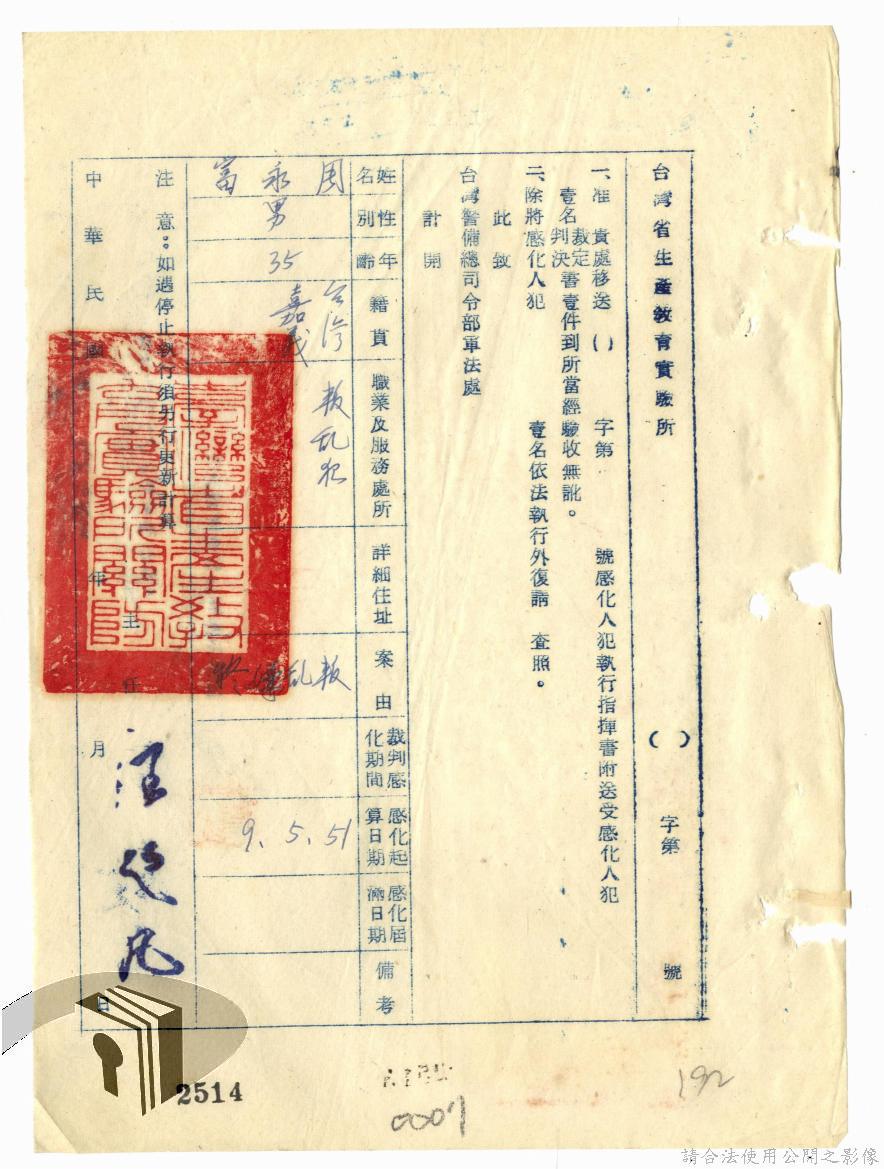 台灣省生產教育實驗所　　()　字第　　號
一、准　貴處移送()　字第　　號感化人犯執行指揮書附送受感化人犯
壹名裁定判決書壹件到所當經驗收無訛。
二、除將感化人犯　　壹名依法執行外復請　查照。
此致
台灣警備總司令部軍法處
計開
姓名　性別　年齡　籍貫　職業及服務處所　詳細住址　案由　裁判感化期間　感化起算日期　感化屆滿日期　備考
周永富　男　35　台灣嘉義　叛乱犯　叛乱　51.5.9
注意：如遇停止執行須另行更新計算
主任
中華民國　年　月　日
台灣省生產教育實驗所關防
2514
0007
192
請合法使用公開之影像